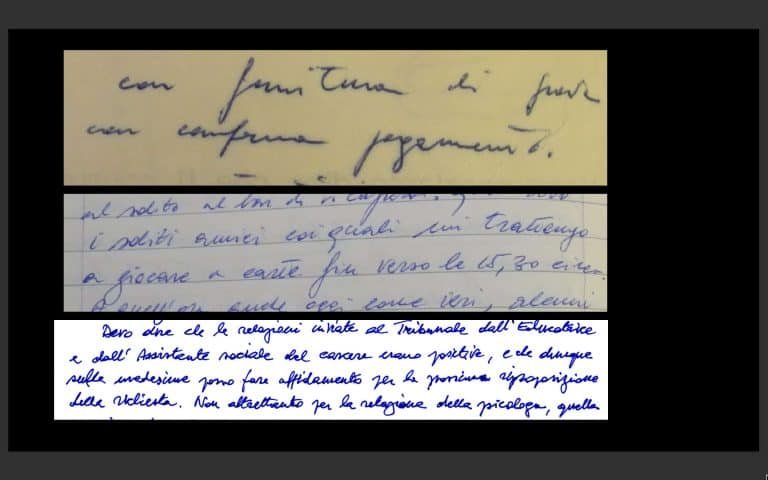 con fornitura di
con conferma pagamento.
al solito al bar di
i soliti amici coi quali mi trattengo
a giocare a carte fin verso le 15,30 circa.
anche oggi come ieri, alcuni
Devo dire che le relazioni inviate al Tribunale dall'Educatrice
e dall'Assistente sociale del carcere erano positive, e che dunque
sulle medesime posso fare affidamento per la prossima riproposizione
della richiesta. Non altrettanto per la relazione della psicologa, quella